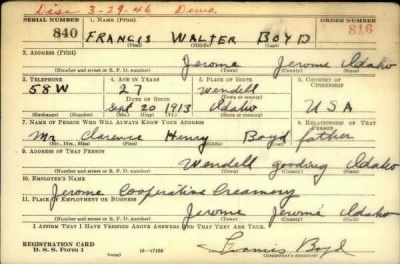 Disc 3-29-46 Dewo.
SERIAL NUMBER 1. NAME (Print) ORDER NUMBER
840 FRANCIS WALTER BOYD 816
(First) (Middle) (Last)
2. ADDRESS (Print)
Jerome Jerome Idaho
(Number and street or R. F. D. number) (Town) (County) (State)
3. TELEPHONE 4. AGE IN YEARS 5. PLACE OF BIRTH 6. COUNTRY OF CITIZENSHIP
58W 27 Wendell
DATE OF BIRTH (Town or county)
Sept 20 1913 Idaho USA
(Exchange) (Number) (Mo.) (Day) (Yr.) (State or country)
7. NAME OF PERSON WHO WILL ALWAYS KNOW YOUR ADDRESS 8. RELATIONSHIP OF THAT PERSON
Mr Clarence Henry Boyd father
(Mr., Mrs., Miss) (First) (Middle) (Last)
9. ADDRESS OF THAT PERSON
Wendell Gooding Idaho
(Number and street or R. F. D. number) (Town) (County) (State)
10. EMPLOYER'S NAME
Jerome Cooperative Creamery
11. PLACE OF EMPLOYMENT OR BUSINESS
Jerome Jerome Idaho
(Number and street or R. F. D. number) (Town) (County) (State)
I AFFIRM THAT I HAVE VERIFIED ABOVE ANSWERS AND THAT THEY ARE TRUE.
REGISTRATION CARD
D. S. S. Form 1 16—17105 Francis Boyd
(Registrant's signature)